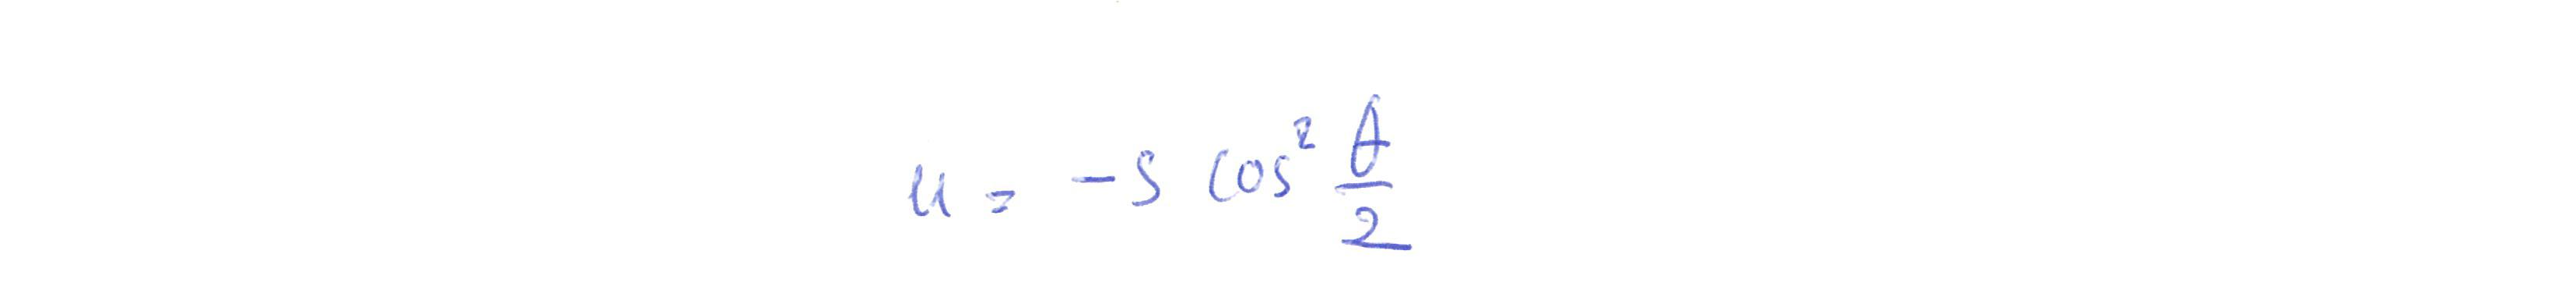 u = -s cos² θ/2